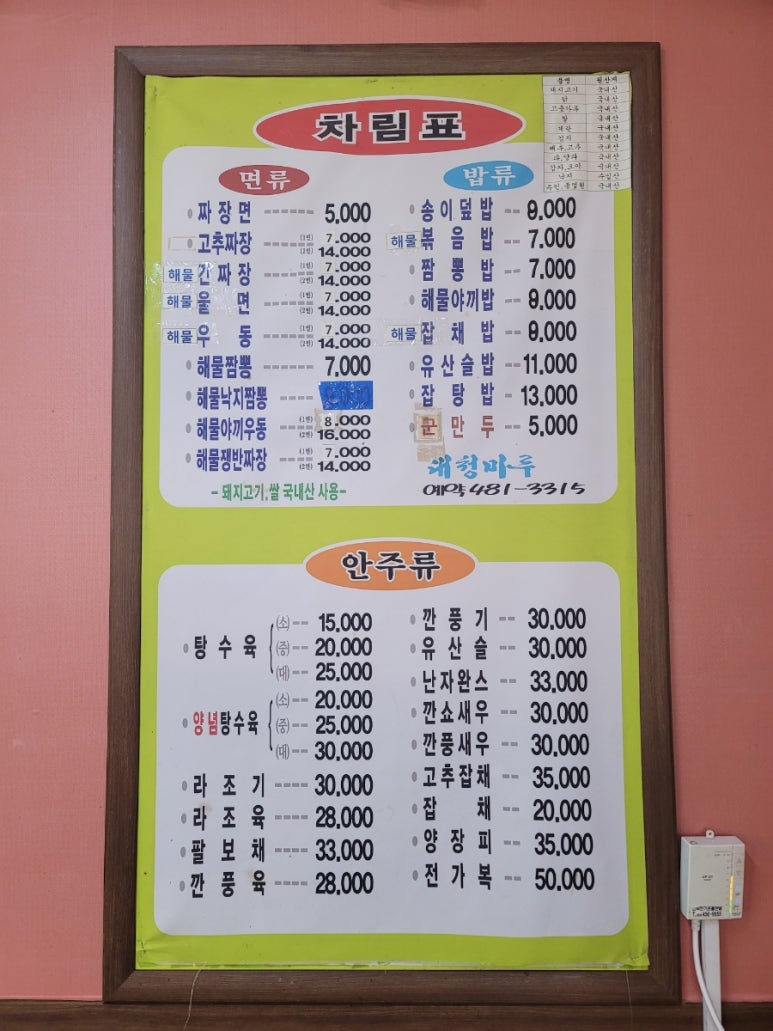 품명 원산지
돼지고기 국내산
닭 국내산
고춧가루 국내산
쌀 국내산
계란 국내산
김치 국내산
배추,고추 국내산
파,양파 국내산
낙지 수입산
국내산
차림표
면류
짜장면 ------ 5,000
고추짜장 (1인) 7,000
(2인) 14,000
해물 간짜장 (1인) 7,000
(2인) 14,000
해물 울면 (1인) 7,000
(2인) 14,000
해물 우동 (1인) 7,000
(2인) 14,000
해물짬뽕 7,000
해물낙지짬뽕
해물야끼우동 (1인) 8,000
(2인) 16,000
해물쟁반짜장 (1인) 7,000
(2인) 14,000
-돼지고기,쌀 국내산 사용-
밥류
송이덮밥 -- 9,000
해물 볶음밥 -- 7,000
짬뽕밥 -- 7,000
해물야끼밥 -- 9,000
해물 잡채밥 -- 9,000
유산슬밥 -- 11,000
잡탕밥 -- 13,000
군만두 -- 5,000
대청마루
예약 481-3315
안주류
탕수육 (소) -- 15,000
(중) -- 20,000
(대) -- 25,000
양념탕수육 (소) -- 20,000
(중) -- 25,000
(대) -- 30,000
라조기 ---- 30,000
라조육 ---- 28,000
팔보채 ---- 33,000
깐풍육 ---- 28,000
깐풍기 -- 30,000
유산슬 -- 30,000
난자완스 -- 33,000
깐쇼새우 -- 30,000
깐풍새우 -- 30,000
고추잡채 -- 35,000
잡채 -- 20,000
양장피 -- 35,000
전가복 -- 50,000